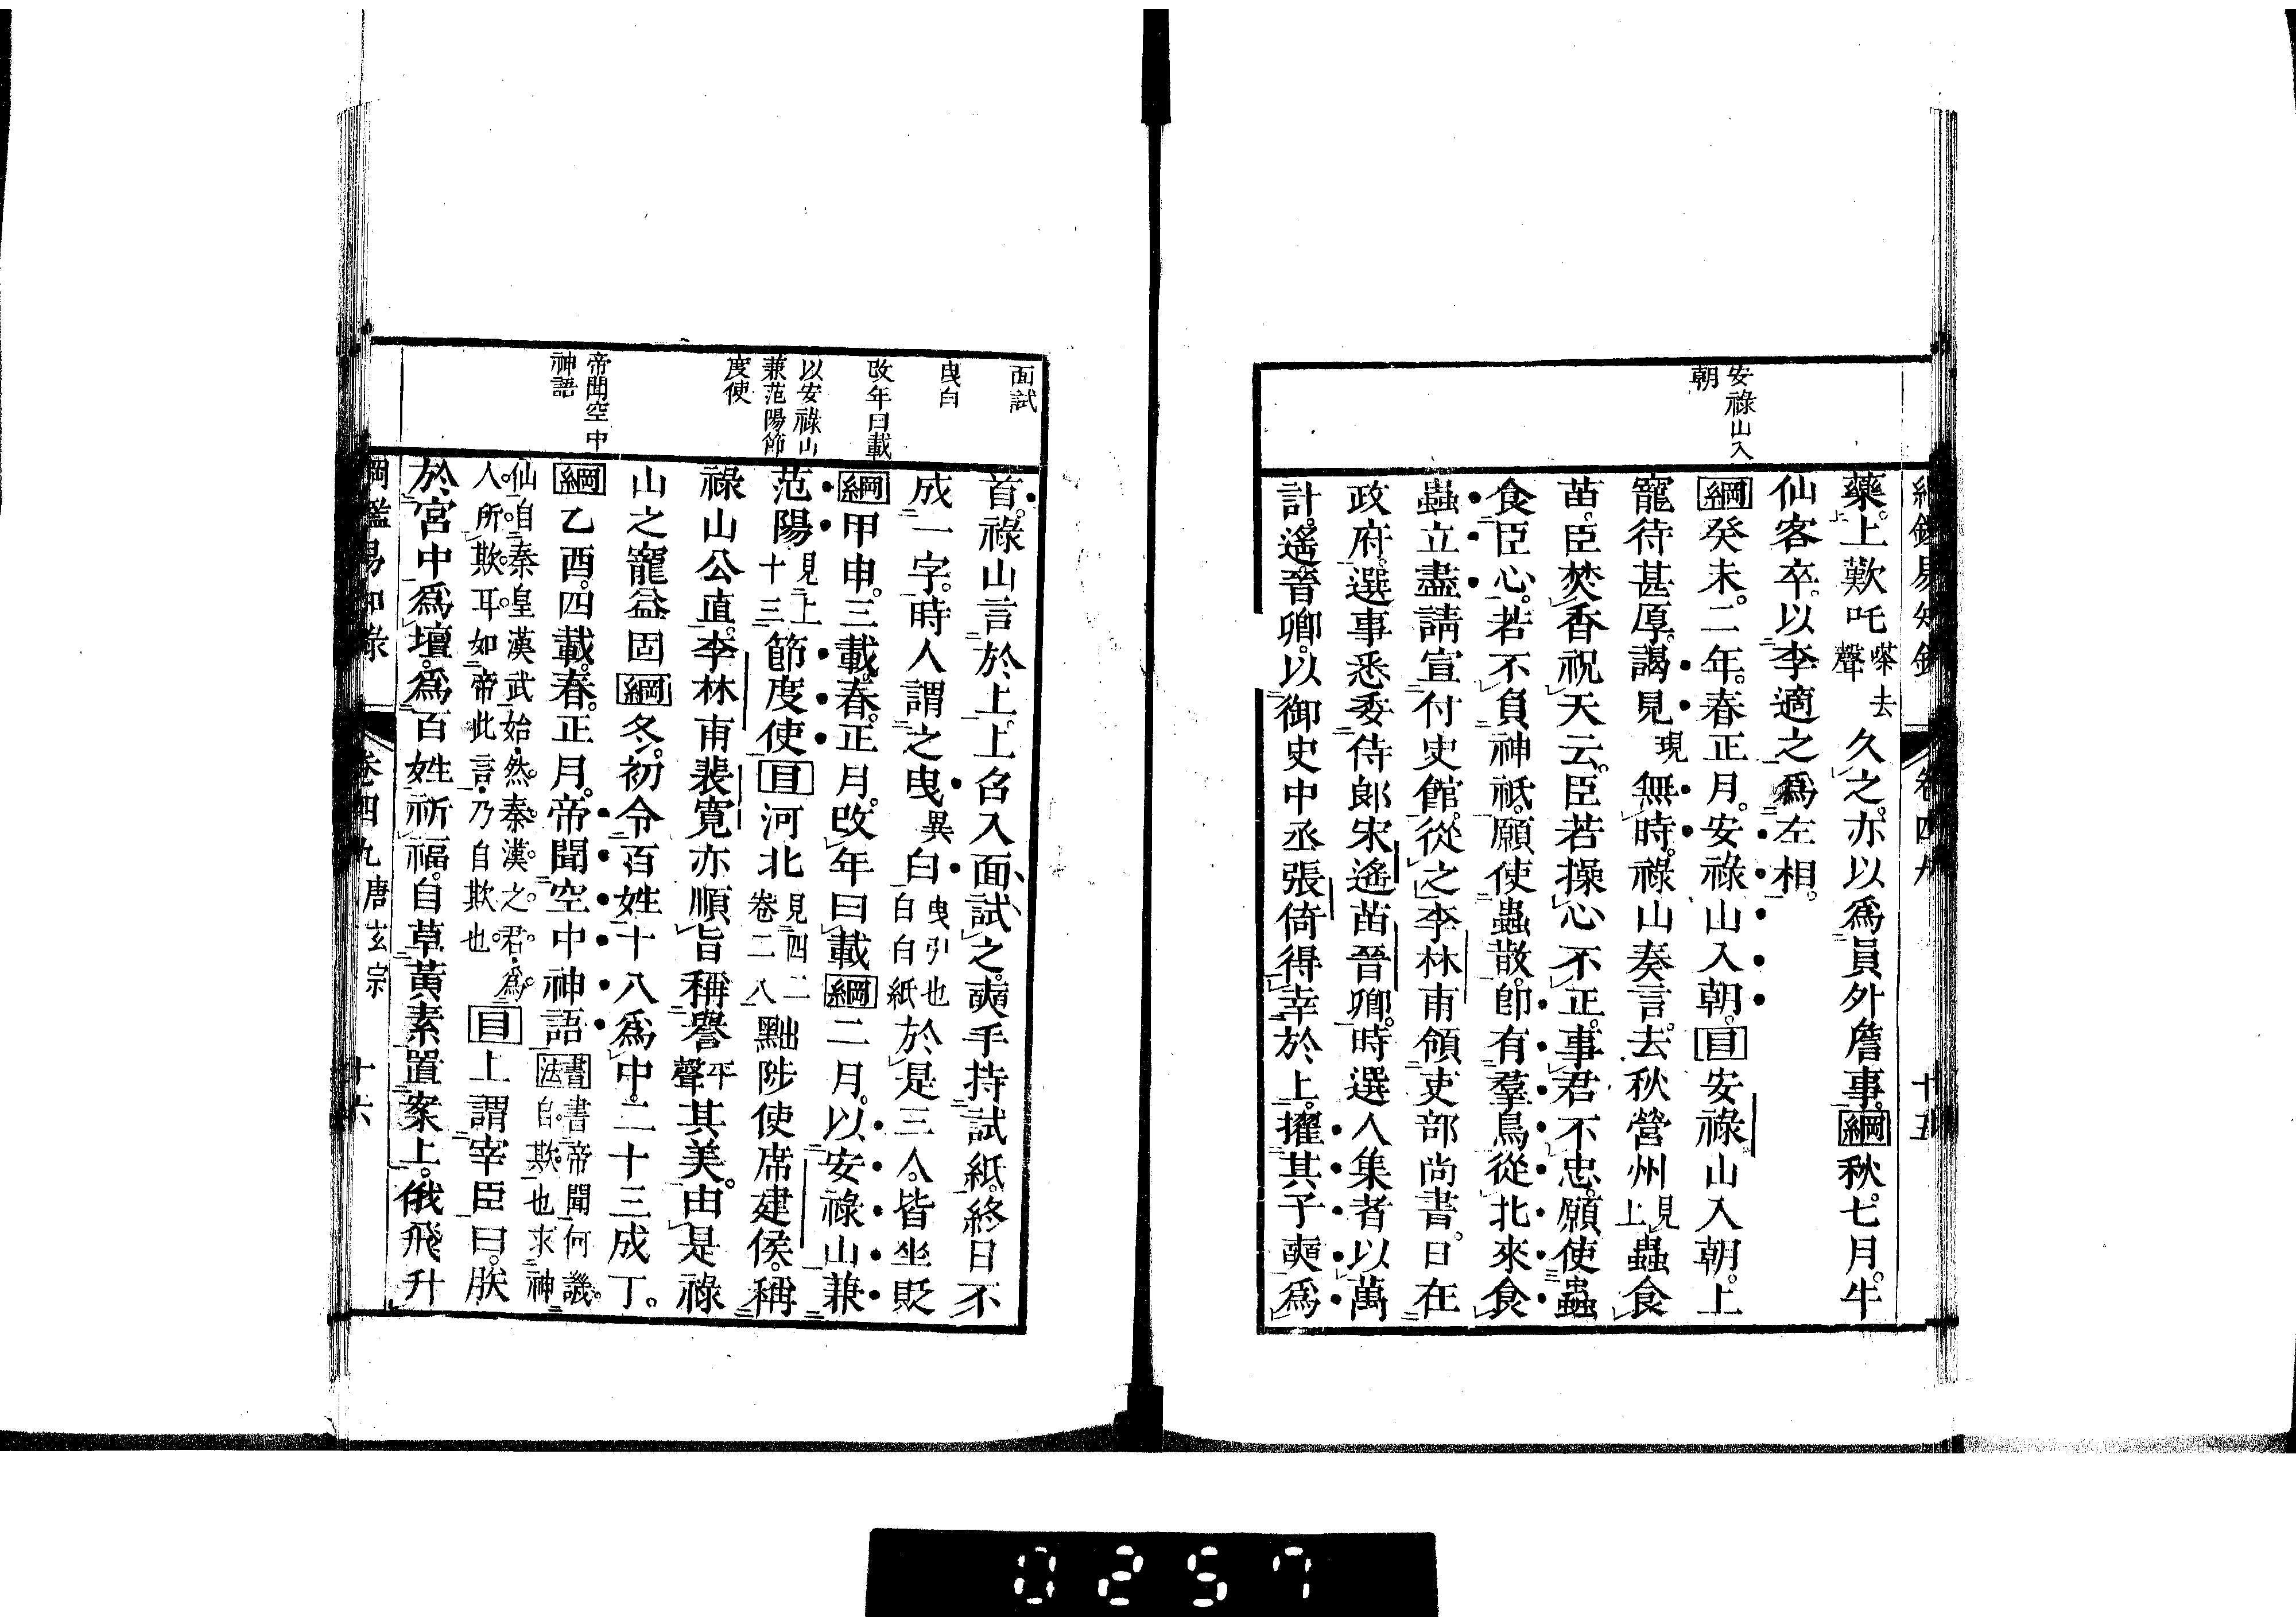 綱鑑易知錄 卷四九 十五
安祿山入
朝
藥。上歎吒嗏去聲久之。亦以爲員外詹事。綱秋。七月。牛
仙客卒。以李適之爲左相。
綱癸未。二年。春正月。安祿山入朝。目安祿山入朝。上
寵待甚厚。謁見現無時。祿山奏言。去秋營州見上蟲食
苗。臣焚香祝天云。臣若操心不正。事君不忠。願使蟲
食臣心。若不負神祇。願使蟲散。卽有羣鳥從北來食
蟲立盡請宣付史館。從之李林甫領吏部尚書。日在
政府。選事悉委侍郎宋遙苗晉卿。時選人集者以萬
計。遙晉卿。以御史中丞張倚得幸於上。擢其子奭爲
面試
曳白
改年曰載
以安祿山
兼范陽節
度使
帝聞空中
神語
首。祿山言於上。上召入面試之。奭手持試紙。終日不
成一字。時人謂之曳異白曳引也白白紙於是三人。皆坐貶
綱甲申。三載。春。正月。改年曰載綱二月。以安祿山兼
范陽見上十三節度使目河北見四二卷二八黜陟使席建侯。稱
祿山公直。李林甫裴寬亦順旨稱譽平聲其美。由是祿
山之寵益固綱冬。初令百姓十八爲中。二十三成丁。
綱乙酉。四載。春。正月。帝聞空中神語書法書帝聞何譏。自欺也求神
仙。自秦皇漢武始。然秦漢之君。爲人所欺耳。如帝此言。乃自欺也。目上謂宰臣曰。朕
於宮中爲壇。爲百姓祈福。自草黃素置案上。俄飛升
綱鑑易知錄 卷四九 唐玄宗 十六
0257